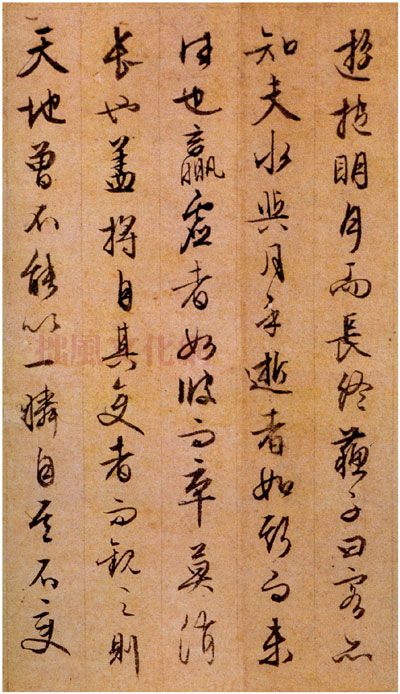 遊抱明月而長終蘇子曰客亦
知夫水與月乎逝者如斯而未
往也贏虛者如彼而卒莫消
長也蓋將自其變者而觀之則
天地曾不能以一瞬自其不變